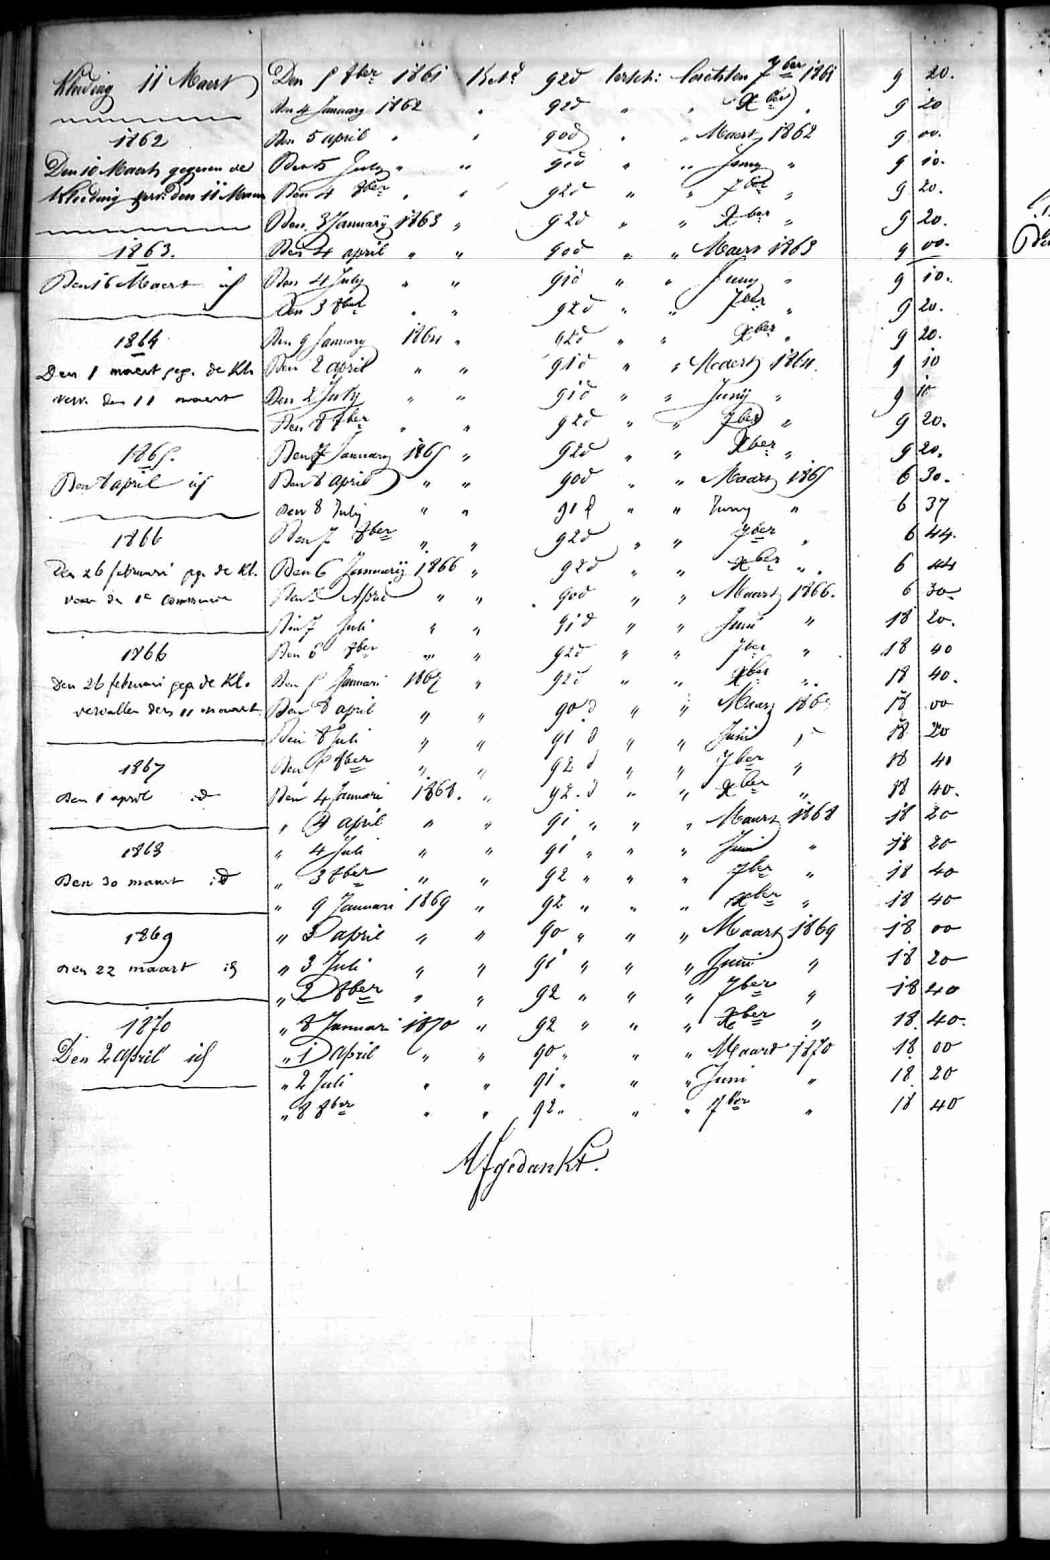 Kleding 11 Maert
1862
Den 10 Maert gegeven de
Kleding verv: den 11 Maert
1863.
Den 16 Maert id
1864
Den 1 maert geg. de Kl:
verv. den 11 maert
1865.
Den 1 april id
1866
Den 26 februari geg. de Kl.
voor de 1e communie
1866
Den 26 februari geg. de Kl.
vervallen den 11 maart
1867
Den 1 april id
1868
Den 30 maart id
1869
Den 22 maart id
1870
Den 2 april id
Den 5 8ber 1861 92d 7ber 1861 9 20.
Den 4 January 1862 " 92d " " Xber " 9 20
Den 5 april " " 90d " " Maert 1862 9 00.
Den 5 July " " 91d " " Juny " 9 10.
Den 4 8ber " " 92d " " 7ber " 9 20.
Den 3 Januarÿ 1863 " 92d " " Xber " 9 20.
Den 4 april " " 90d " " Maert 1863 9 00.
Den 4 July " " 91d " " Juny " 9 10.
Den 3 8ber " " 92d " " 7ber " 9 20.
Den 9 January 1864 " 92d " " Xber " 9 20.
Den 2 april " " 91d " " Maert 1864. 9 10
Den 2 July " " 91d " " Junÿ " 9 10
Den 8 8ber " " 92d " " 7ber " 9 20.
Den 7 January 1865 " 92d " " Xber " 9 20.
Den 8 april " " 90d " " Maart 1865 6 30.
Den 8 July " " 91d " " Juny " 6 37
Den 7 8ber " " 92d " " 7ber " 6 44.
Den 6 Januarÿ 1866 " 92d " " Xber " 6 44
Den April " " 90d " " Maart 1866. 6 30
Den 7 Juli " " 91d " " Juni " 18 20.
Den 6 8ber " " 92d " " 7ber " 18 40
Den 5 Januari 1867 " 92d " " Xber " 18 40.
Den 8 april " " 90d " " Maart 1867 18 00
Den 8 Juli " " 91d " " Juni " 18 20
Den 8ber " " 92d " " 7ber " 18 40
Den 4 Januari 1868. " 92.d " " Xber " 18 40.
" 4 april " " 91 " " " Maart 1868 18 20
" 4 Juli " " 91 " " " Juni " 18 20
" 3 8ber " " 92 " " " 7ber " 18 40
" 9 Januari 1869 " 92 " " " Xber " 18 40
" 3 april " " 90 " " " Maart 1869 18 00
" 3 Juli " " 91 " " " Juni " 18 20
" 2 8ber " " 92 " " " 7ber " 18 40
" 8 Januari 1870 " 92 " " " Xber " 18. 40.
" 1 April " " 90 " " " Maart 1870 18 00
" 2 Juli " " 91 " " " Juni " 18 20
" 8 8ber " " 92 " " " 7ber " 18 40
Afgedankt.